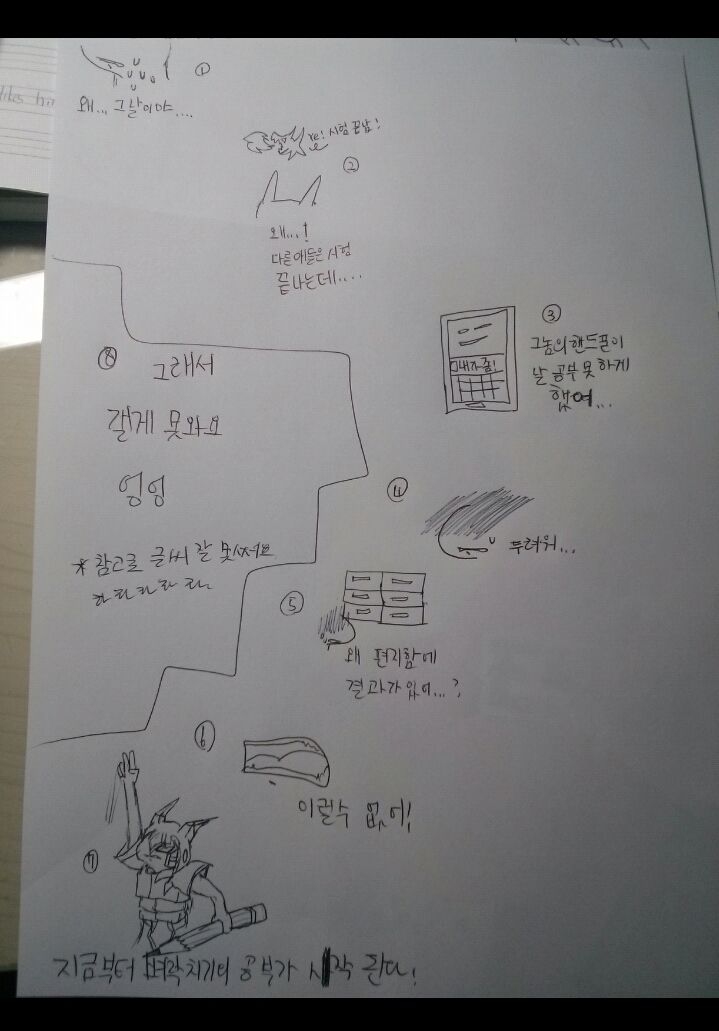 ①
왜... 그날이야....
예! 시험 끝남!
②
왜...!
다른애들은 시험
끝나는데....
③
그놈의 핸드폰이
날 공부 못 하게
했어...
④
두려워...
⑤
왜 편지함에
결과가 있어...?
⑥
이럴수 없어!
⑦
지금부터 벼락치기의 공부가 시작 된다!
⑧
그래서
갤에 못와요
엉엉
* 참고로 글씨 잘 못써요